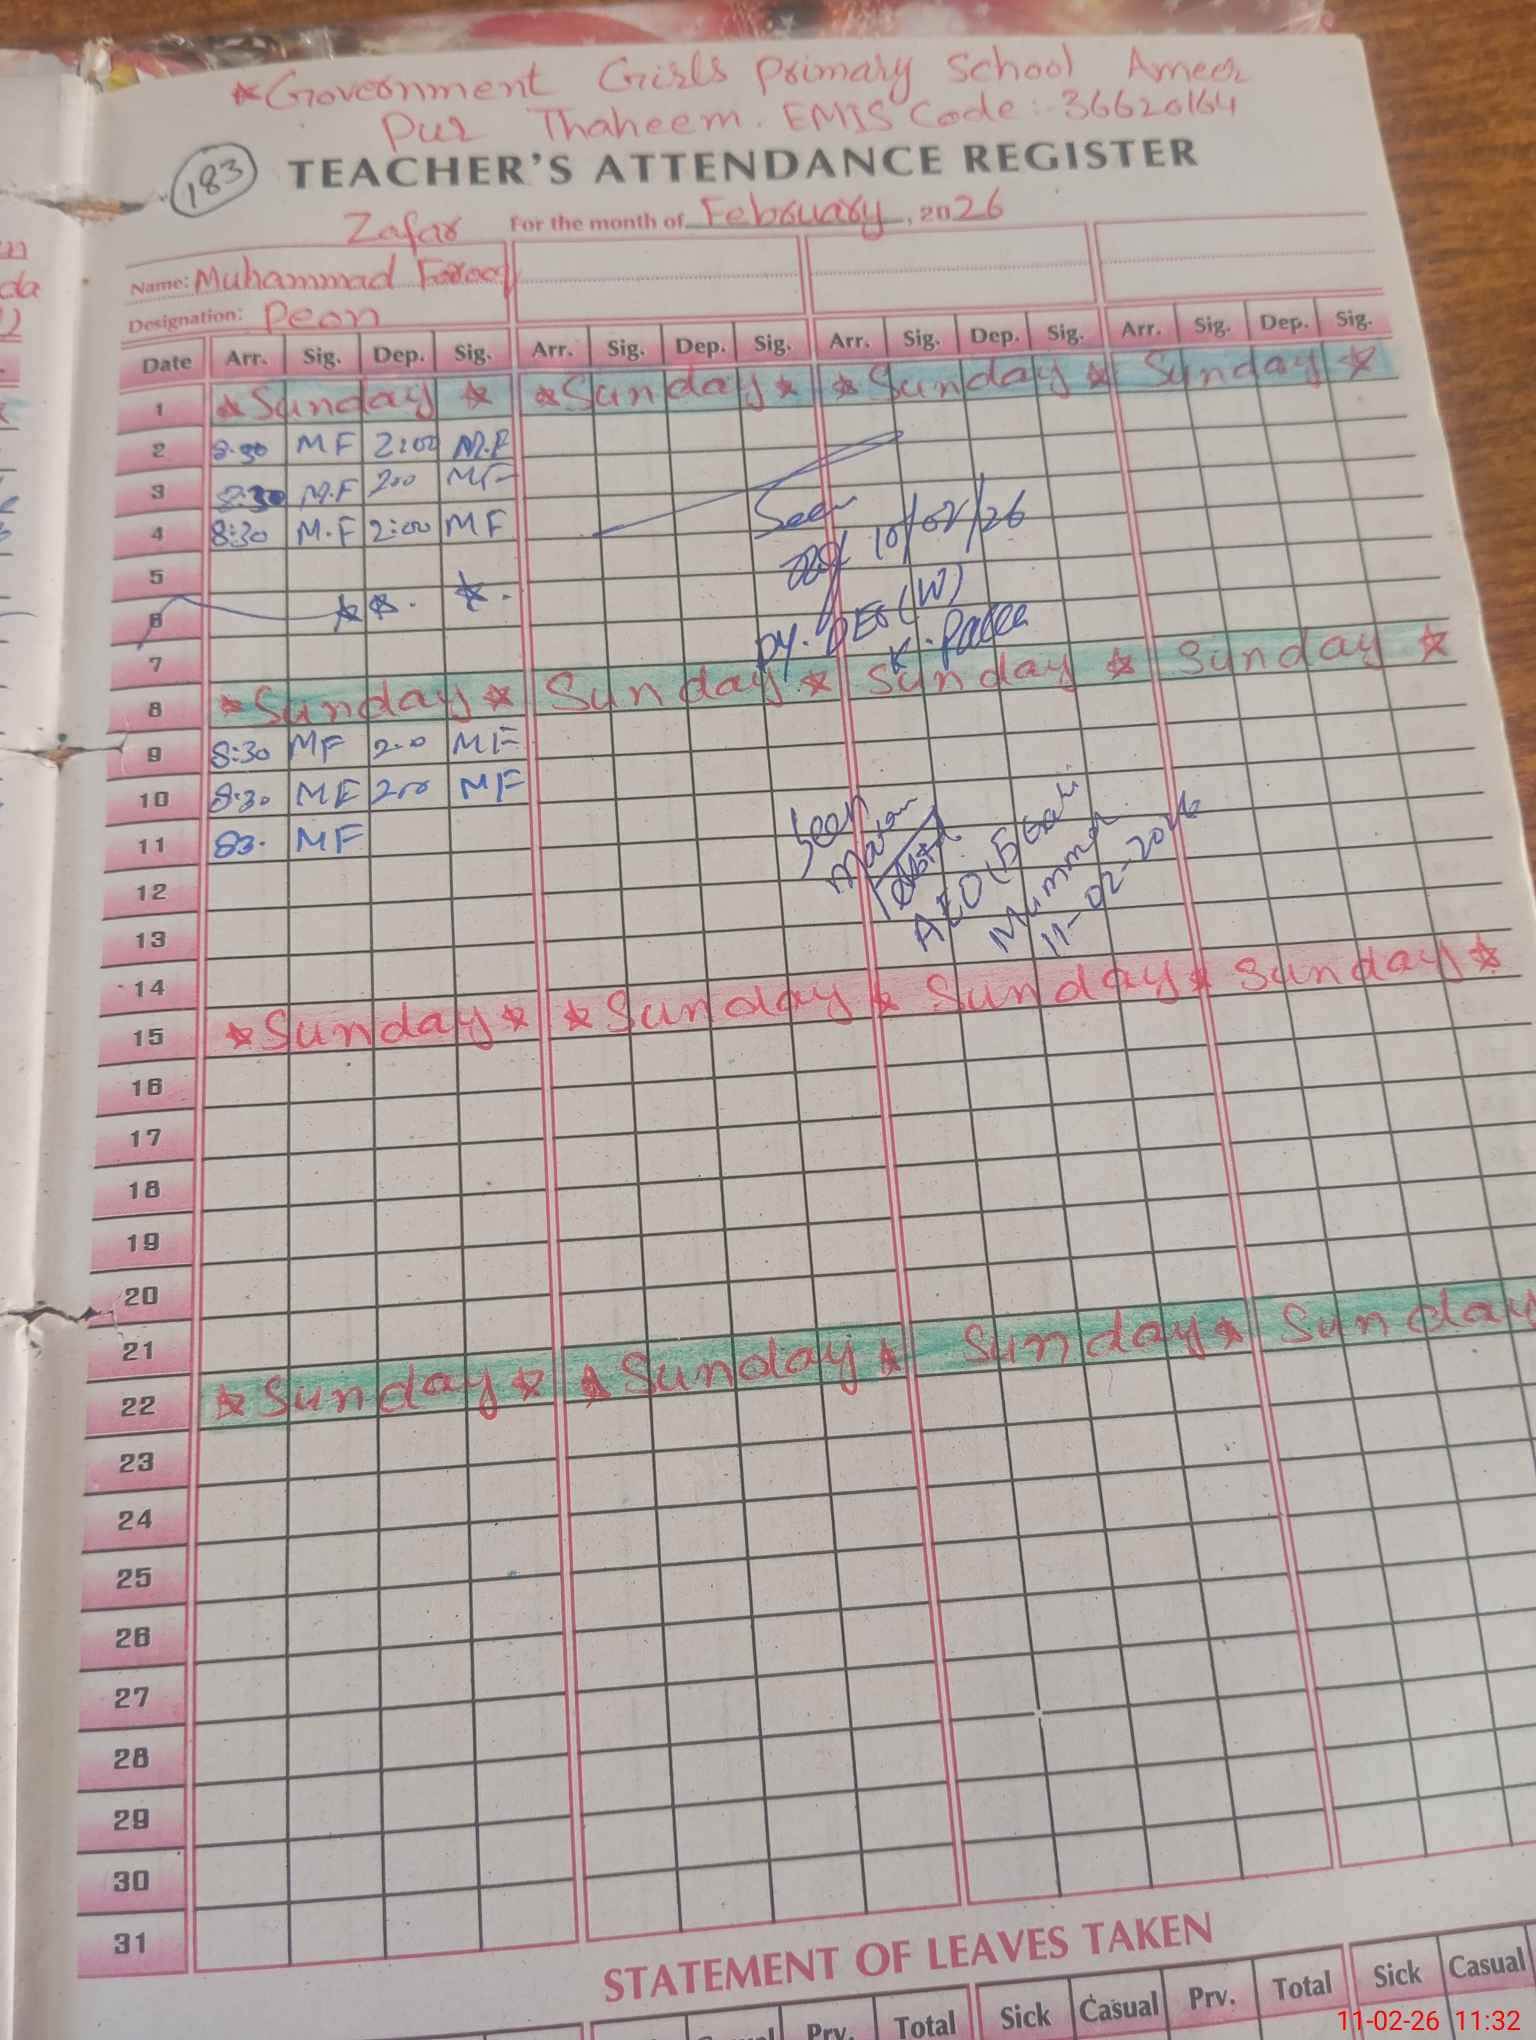 *Government Girls Primary School Ameer
Pur Thaheem. EMIS Code:-36620164
183
TEACHER'S ATTENDANCE REGISTER
For the month of February, 2026
Zafar
Name: Muhammad Farooq
Designation: Peon
Date Arr. Sig. Dep. Sig. Arr. Sig. Dep. Sig. Arr. Sig. Dep. Sig. Arr. Sig. Dep. Sig.
1 *Sunday * *Sunday * *Sunday * Sunday *
2 8:30 MF 2:00 M.F
3 8:30 M.F 200 MF
4 8:30 M.F 2:00 MF
Seen
10/02/26
5
6
Dy. DEO (W)
7
8 *Sunday * Sunday * Sunday * Sunday *
9 8:30 MF 2.0 MF
10 8:30 MF 200 MF
11 83. MF
Seen
AEO
11-02-2026
12
13
14
15 *Sunday * *Sunday * Sunday * Sunday *
16
17
18
19
20
21
22 *Sunday * *Sunday * Sunday * Sunday
23
24
25
26
27
28
29
30
31
STATEMENT OF LEAVES TAKEN
Prv. Total Sick Casual Prv. Total Sick Casual
11-02-26 11:32